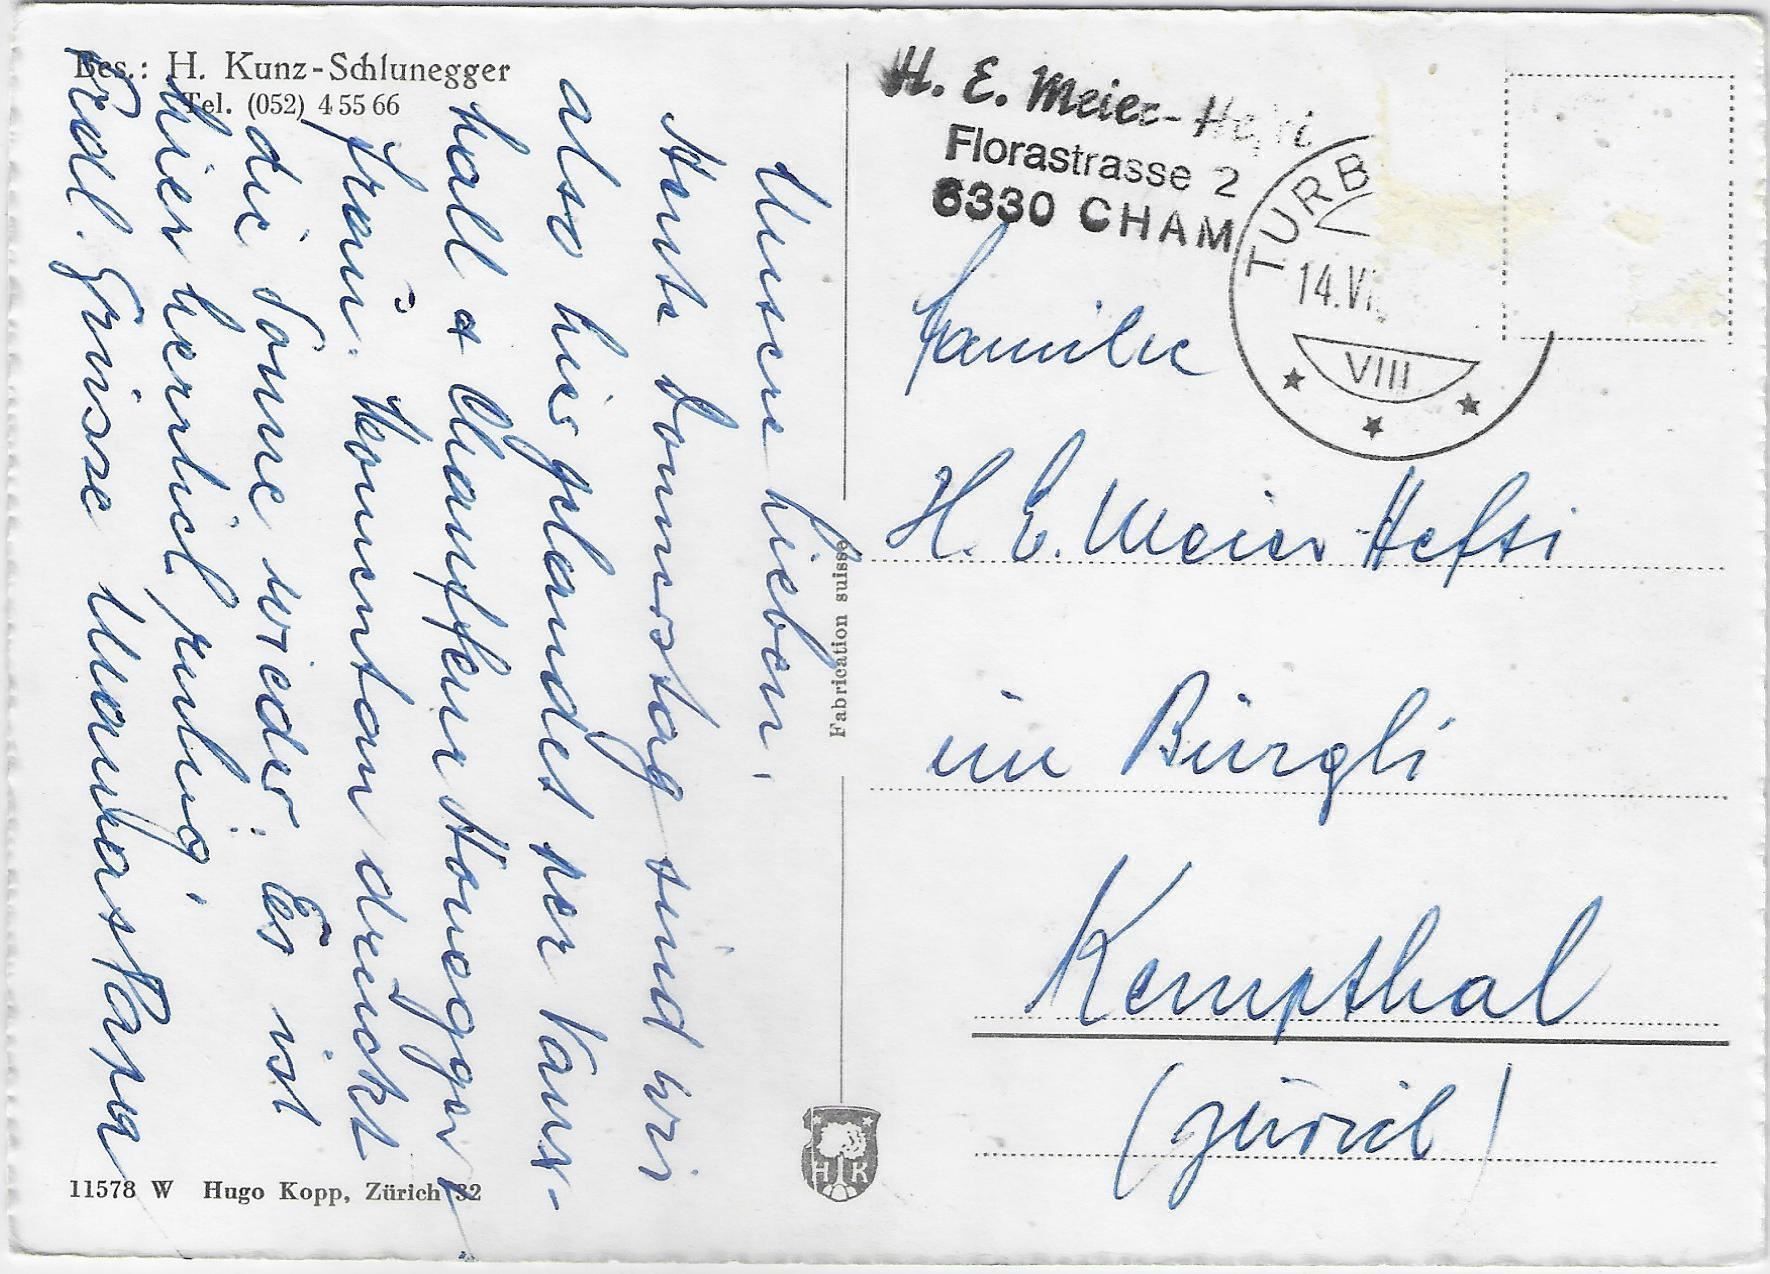 Bes.: H. Kunz-Schlunegger
Tel. (052) 4 55 66
Unsere Lieben,
Heute Donnerstag sind wir
also hier gelandet per Vaux-
hall &
frau. Momentan drückt
die Sonne wieder. Es ist
hier herrlich ruhig.
Herzl. Grüsse Mama & Papa
11578 W Hugo Kopp, Zürich 32
Fabrication suisse
H K
H. E. Meier-Hefti
Florastrasse 2
6330 CHAM
TURB
14.VI
VIII
Familie
H. E. Meier-Hefti
im Bürgli
Kemptthal
(Zürich)